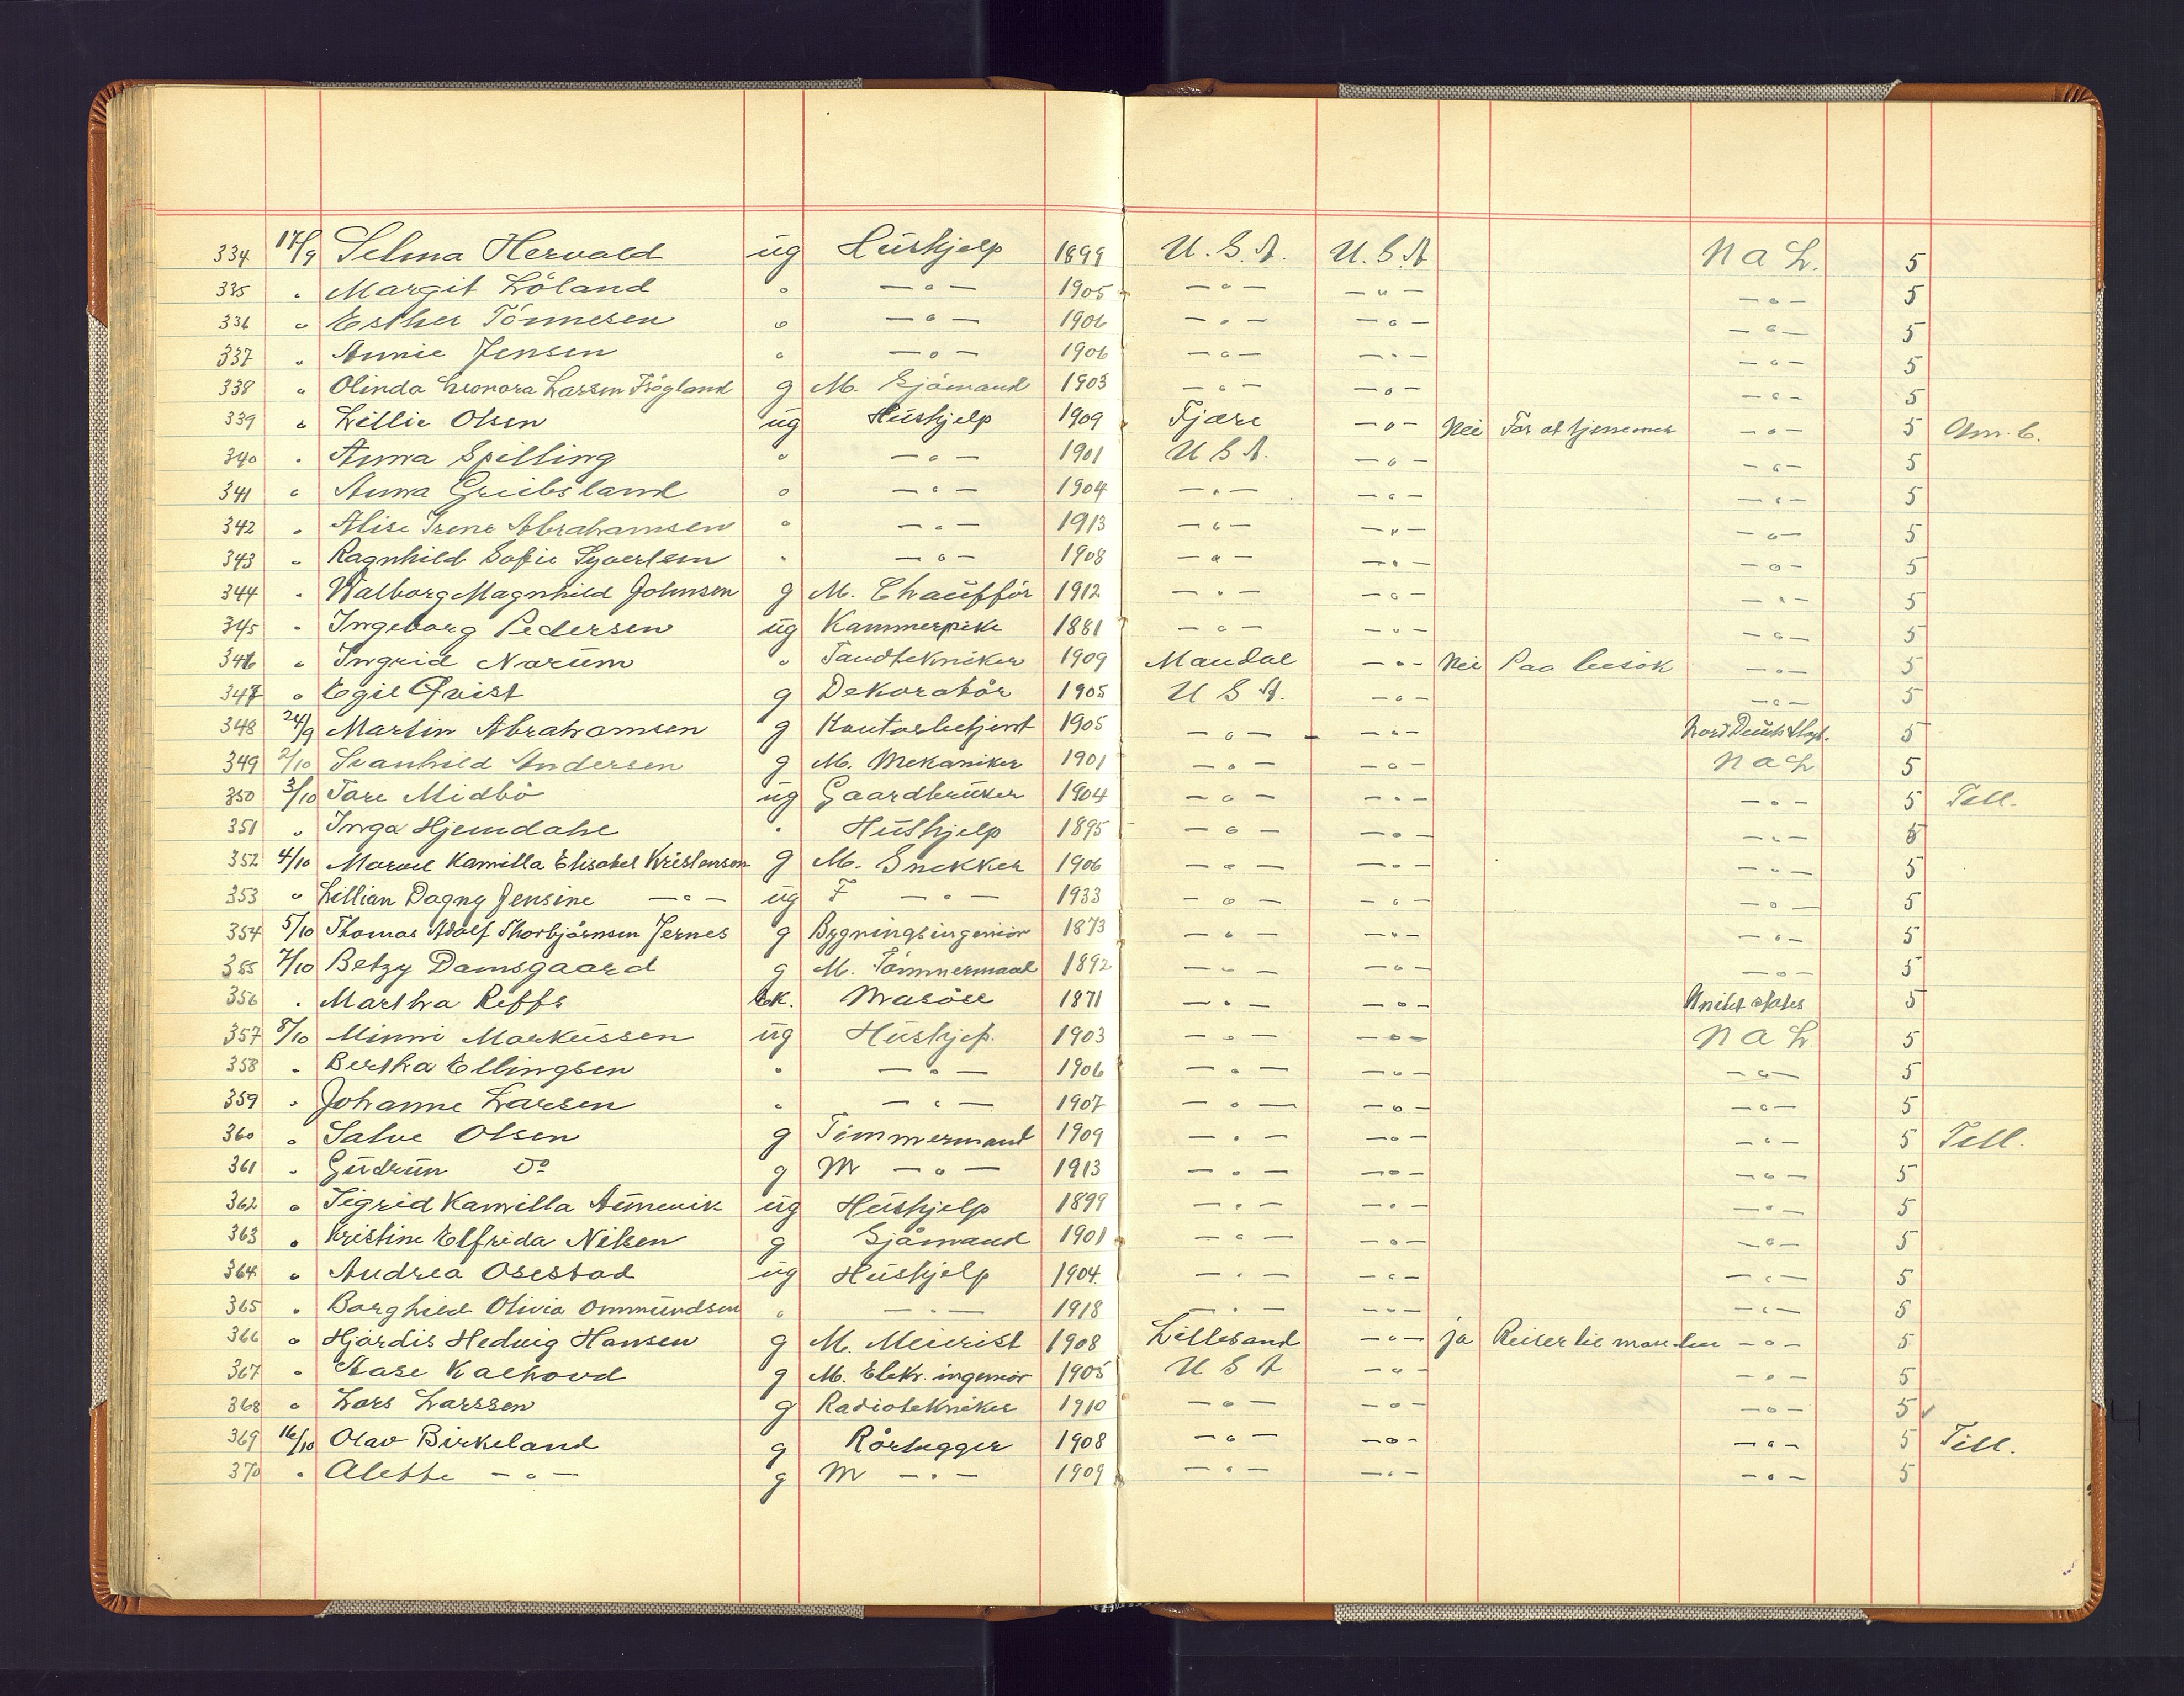 334 17/9 Selma Hervald ug Hushjelp 1899 U.S.A. U.S.A N a L. 5
335 " Margit Löland " — " — 1905 — " — — " — — " — 5
336 " Esther Tönnesen " — " — 1906 — " — — " — — " — 5
337 " Annie Jensen " — " — 1906 — " — — " — — " — 5
338 " Olinda Leonora Larsen Frögland g M. Sjömand 1903 — " — — " — — " — 5
339 " Lillie Olsen ug Hushjelp 1909 Fjære — " — Nei For at tjene mer — " — 5
340 " Anna Spilling " — " — 1901 U S A. — " — — " — 5
341 " Anna Greibsland " — " — 1904 — " — — " — — " — 5
342 " Alise Irene Abrahamsen " — " — 1913 — " — — " — — " — 5
343 " Ragnhild Sofie Syvertsen " — " — 1908 — " — — " — — " — 5
344 " Walborg Magnhild Johnsen g M. Chaufför 1912 — " — — " — — " — 5
345 " Ingeborg Pedersen ug Kammerpike 1881 — " — — " — — " — 5
346 " Ingrid Norum " Tandtekniker 1909 Mandal — " — Nei Paa besök — " — 5
347 " Egil Qvist g Dekoratör 1905 U S A. — " — — " — 5
348 24/9 Martin Abrahamsen g Kontorbetjent 1905 — " — — " — Nord Deutsch 5
349 2/10 Svanhild Andersen g M. Mekaniker 1901 — " — — " — N a L 5
350 3/10 Tore Midbö ug Gaardbruker 1904 — " — — " — — " — 5 Till.
351 " Inga Hjemdahl " Hushjelp 1895 — " — — " — — " — 5
352 4/10 Kamilla Elisabet Kristensen g M. Snekker 1906 — " — — " — — " — 5
353 " Lillian Dagny Jensine — " — ug F — " — 1933 — " — — " — — " — 5
354 5/10 Thomas Adolf Thorbjörnsen Jernes g Bygningsingeniör 1873 — " — — " — — " — 5
355 7/10 Betzy Damsgaard g M. Tömmermand 1892 — " — — " — — " — 5
356 " Martha Reffs Ek. Masöse 1871 — " — — " — United States 5
357 8/10 Minni Markussen ug Hushjep. 1903 — " — — " — N a L 5
358 " Bertha Ellingsen " — " — 1906 — " — — " — — " — 5
359 " Johanne Larsen " — " — 1907 — " — — " — — " — 5
360 " Salve Olsen g Timmermand 1909 — " — — " — — " — 5 Till.
361 " Gudrun Do g M — " — 1913 — " — — " — — " — 5
362 " Sigrid Kamilla Aunevik ug Hushjelp 1899 — " — — " — — " — 5
363 " Kristine Elfrida Nilsen g Sjömand 1901 — " — — " — — " — 5
364 " Andrea Osestad ug Hushjelp 1904. — " — — " — — " — 5
365 " Borghild Olivia Ommundsen " — " — 1918 — " — — " — — " — 5
366 " Hjördis Hedvig Hansen g M. Meierist 1908 Lillesand — " — ja Reiser til manden — " — 5
367 " Aase Kalhovd g M. Elekr. ingeniör 1905 U S A — " — — " — 5
368 " Lars Larssen g Radiotekniker 1910 — " — — " — — " — 5
369 16/10 Olav Birkeland g Rörlegger 1908 — " — — " — — " — 5 Till.
370 " Alette — " — g M — " — 1909 — " — — " — — " — 5